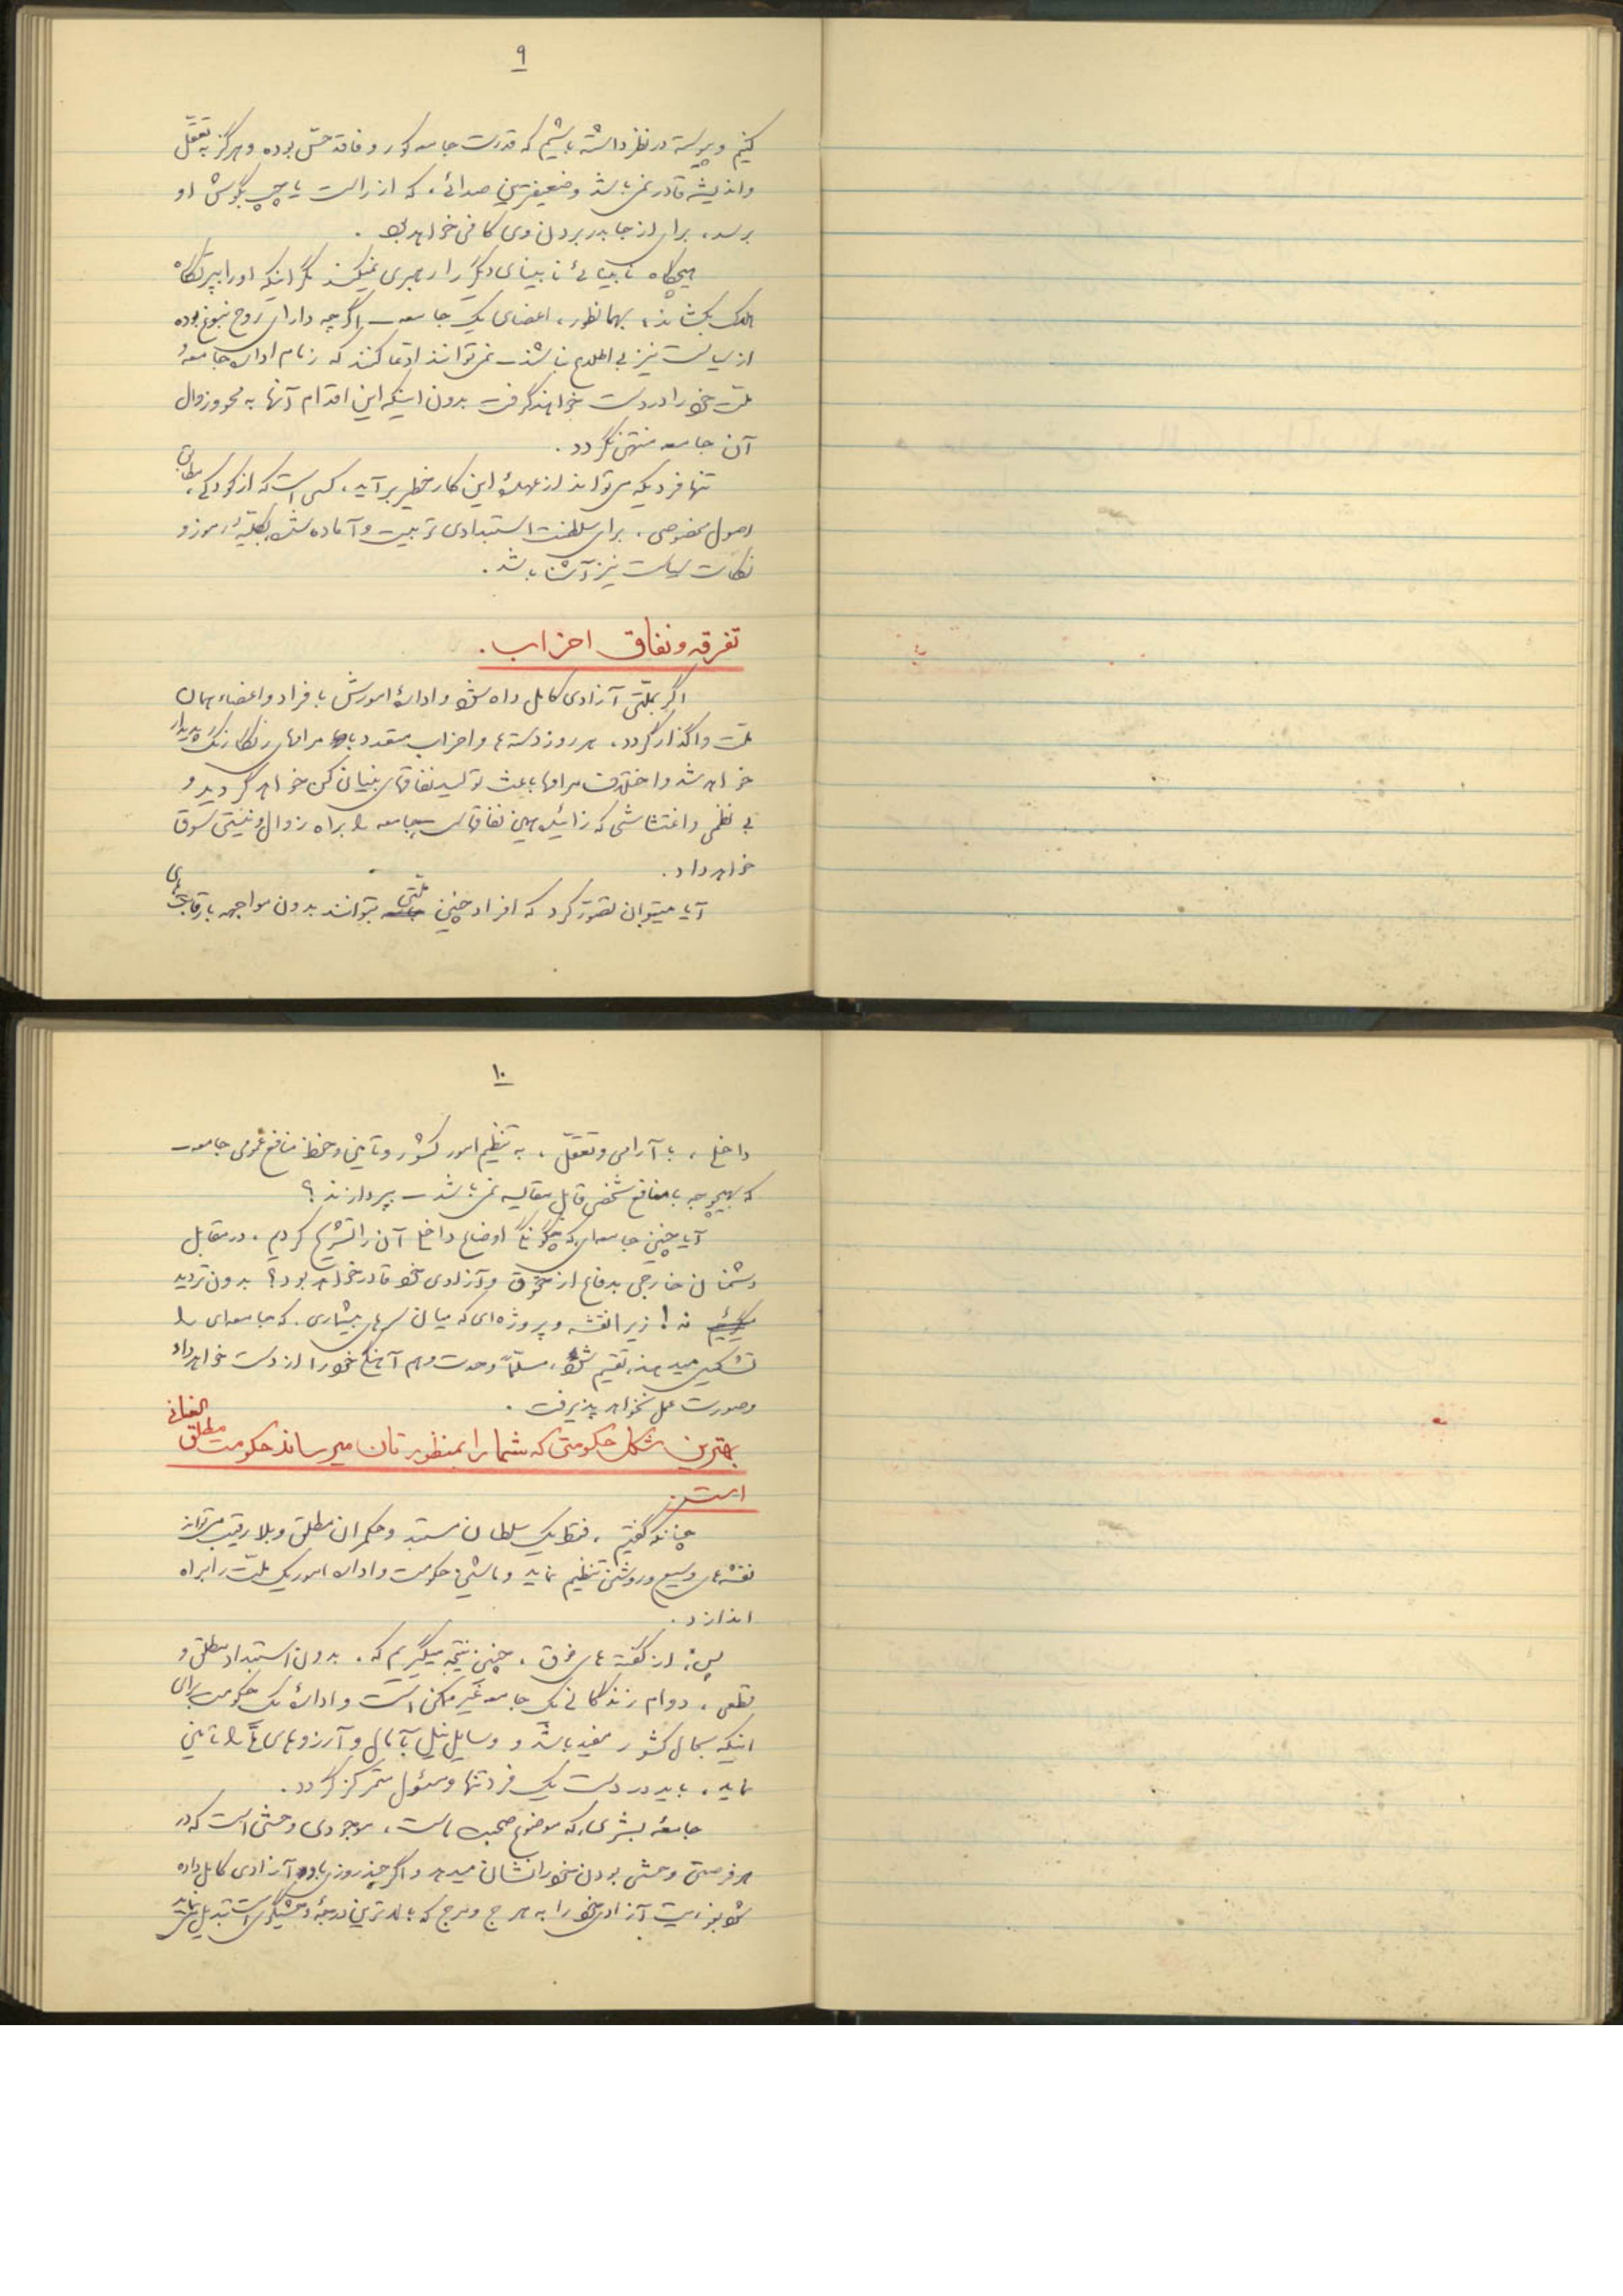 ۹
کنیم و پیوسته در نظر داشته باشیم که قدرت جامعه کور و فاقد حس بوده و هرگز به تعقّل
و اندیشه قادر نمی‌باشد و ضعیفترین صدائی، که از راست یا چپ بگوش او
برسد، برای از جا بدر بردن وی کافی خواهد بود.
هیچگاه نابینائی نابینای دیگر را رهبری نمیکند مگر اینکه او را بپرتگاه
هلاک بکشاند، بهمانطور، اعضای یک جامعه ـ اگرچه دارای روح نبوغ بوده
از سیاست نیز بی اطلاع نباشند ـ نمی‌توانند ادعا کنند که زمام اداره جامعه و
ملت خود را در دست خواهند گرفت بدون اینکه این اقدام آنها به محو و زوال
آن جامعه منتهی نگردد.
تنها فردیکه می‌تواند از عهدهٔ این کار خطیر برآید، کسی است که از کودکی، مطابق
اصول مخصوصی، برای سلطنت استبدادی تربیت و آماده شده بکلیهٔ رموز و
نکات سیاست نیز آشنا باشد.
تفرقه و نفاق احزاب.
اگر بملّتی آزادی کامل داده شود و ادارهٔ امورش با فراد و اعضاء همان
ملت واگذار گردد، هر روز دسته‌ها و احزاب متعدد با مرامهای رنگارنگ پدیدار
خواهد شد و اختلاف مرامها باعث تولید نفاقهای بنیان کن خواهد گردید و
بی نظمی و اغتشاشی که زائیده همین نفاقهاست جامعه را براه زوال و نیستی سوق
خواهد داد.
آیا میتوان تصوّر کرد که افراد چنین ملّتی بتوانند بدون مواجهه با رقابتهای
۱۰
داخلی، با آرامی و تعقّل، به تنظیم امور کشور و تأمین و حفظ منافع عمومی جامعه ـ
که بهیچوجه با منافع شخصی قابل مقایسه نمی‌باشد ـ بپردازند؟
آیا چنین جامعه‌ای که چگونگی اوضاع داخلی آن را تشریح کردیم، در مقابل
دشمنان خارجی بدفاع از حقوق و آزادی خود قادر خواهد بود؟ بدون تردید
نه! زیرا نقشه و پروژه‌ای که میان سرهای بیشماری، که جامعه‌ای را
تشکیل میدهند، تقسیم شود، مسلّماً وحدت و هم آهنگی خود را از دست خواهد داد
و صورت عمل نخواهد پذیرفت.
بهترین شکل حکومتی که شما را بمنظورتان میرساند حکومت مطلق العنانی
است.
چنانکه گفتیم، فقط یک سلطان مستبد و حکمران مطلق و بلا رقیب می‌تواند
نقشه‌های وسیع و روشنی تنظیم نماید و ماشین حکومت و اداره امور یک ملّت را براه
اندازد.
پس، از گفته‌های فوق، چنین نتیجه میگیریم که، بدون استبداد مطلق و
قطعی، دوام زندگانی یک جامعه غیر ممکن است و ادارهٔ یک حکومت برای
اینکه بحال کشور مفید باشد و وسایل نیل بآمال و آرزوهای ما را تأمین
نماید، باید در دست یک فرد تنها و مسئول متمرکز گردد.
جامعهٔ بشری، که موضوع صحبت ماست، موجودی وحشی است که در
هر فرصتی وحشی بودن خود را نشان میدهد و اگر چند روزی باو آزادی کامل داده
شود بفوریت آزادی خود را به هرج و مرج که بالاترین درجهٔ وحشیگری است تبدیل مینماید